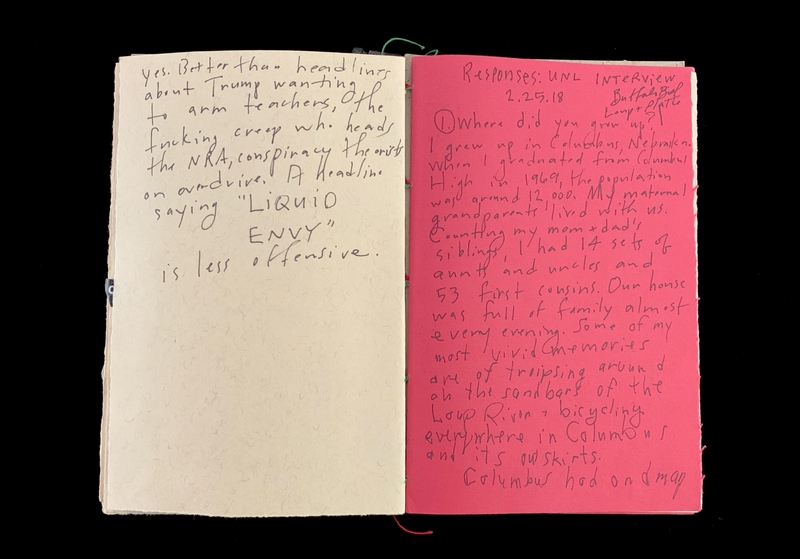 yes. Better than headlines
about Trump wanting
to arm teachers, the
fucking creep who heads
the NRA, conspiracy theorists
on overdrive. A headline
saying "LIQUID
ENVY"
is less offensive.
Responses: UNL INTERVIEW
2.25.18
Buffalo Bill
Loup + Platte
① Where did you grow up?
I grew up in Columbus, Nebraska.
When I graduated from Columbus
High in 1969, the population
was around 12,000. My maternal
grandparents lived with us.
Counting my mom + dad's
siblings, I had 14 sets of
aunts and uncles and
53 first cousins. Our house
was full of family almost
every evening. Some of my
most vivid memories
are of traipsing around
on the sandbars of the
Loup River + bicycling
everywhere in Columbus
and its outskirts.
Columbus had one